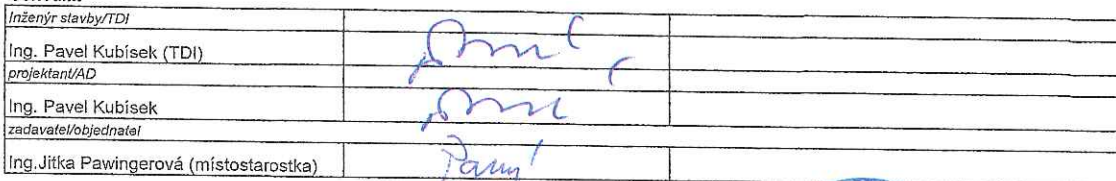 Inženýr stavby/TDI
Ing. Pavel Kubísek (TDI)
projektant/AD
Ing. Pavel Kubísek
zadavatel/objednatel
Ing.Jitka Pawingerová (místostarostka)